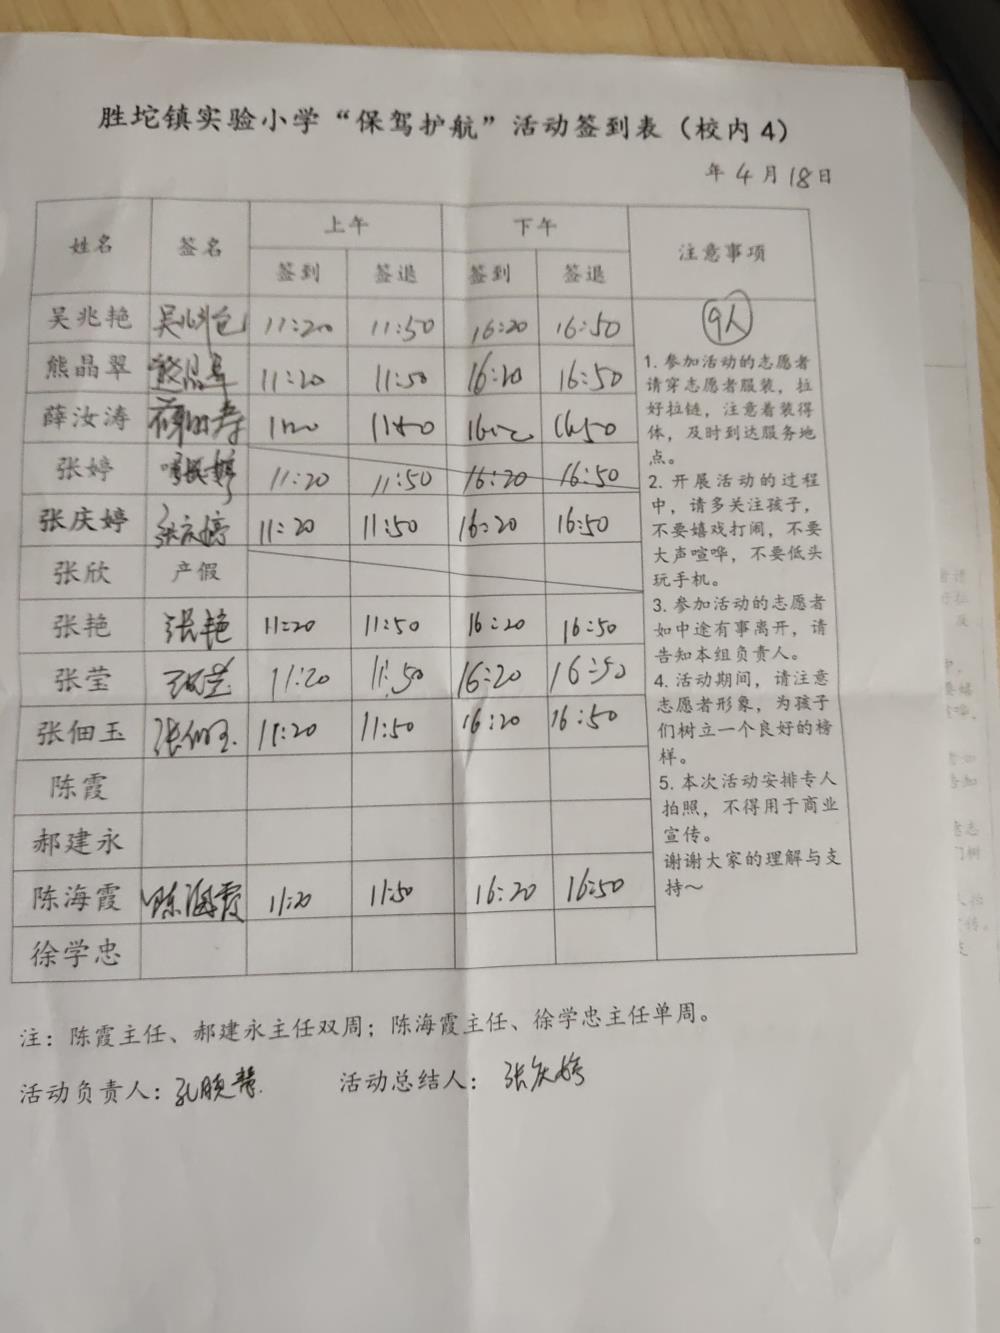 胜坨镇实验小学“保驾护航”活动签到表（校内4）
年4月18日
姓名 签名 上午 下午 注意事项
签到 签退 签到 签退
吴兆艳 吴兆艳 11:20 11:50 16:20 16:50
熊晶翠 熊晶翠 11:20 11:50 16:20 16:50
薛汝涛 薛汝涛 1120 11:50 16:50
张婷 张婷 11:20 11:50 16:20 16:50
张庆婷 张庆婷 11:20 11:50 16:20 16:50
张欣 产假
张艳 张艳 11:20 11:50 16:20 16:50
张莹 张莹 11:20 11:50 16:20 16:50
张佃玉 张佃玉 11:20 11:50 16:20 16:50
陈霞
郝建永
陈海霞 陈海霞 11:20 11:50 16:20 16:50
徐学忠
9人
1. 参加活动的志愿者
请穿志愿者服装，拉
好拉链，注意着装得
体，及时到达服务地
点。
2. 开展活动的过程
中，请多关注孩子，
不要嬉戏打闹，不要
大声喧哗，不要低头
玩手机。
3. 参加活动的志愿者
如中途有事离开，请
告知本组负责人。
4. 活动期间，请注意
志愿者形象，为孩子
们树立一个良好的榜
样。
5. 本次活动安排专人
拍照，不得用于商业
宣传。
谢谢大家的理解与支
持～
注：陈霞主任、郝建永主任双周；陈海霞主任、徐学忠主任单周。
活动负责人：孔晓慧 活动总结人：张庆婷